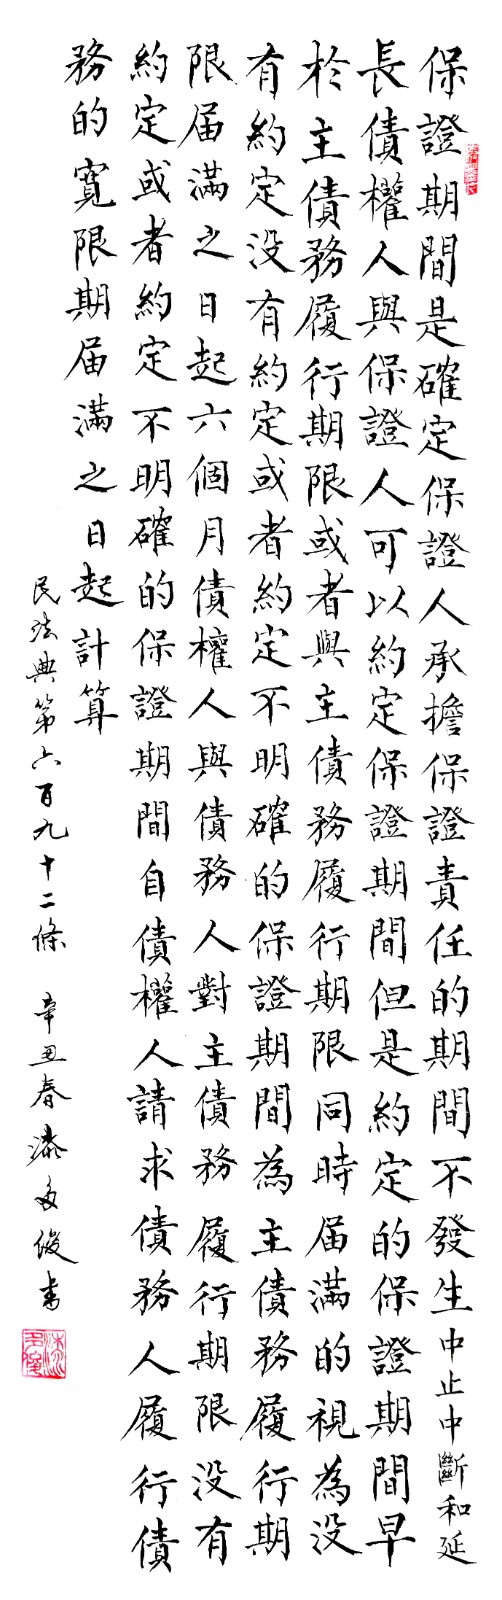 保證期間是確定保證人承擔保證責任的期間不發生中止中斷和延
長債權人與保證人可以約定保證期間但是約定的保證期間早
於主債務履行期限或者與主債務履行期限同時届滿的視為没
有約定没有約定或者約定不明確的保證期間為主債務履行期
限届滿之日起六個月債權人與債務人對主債務履行期限没有
約定或者約定不明確的保證期間自債權人請求債務人履行債
務的寬限期届滿之日起計算
民法典第六百九十二條 辛丑春漆多俊書